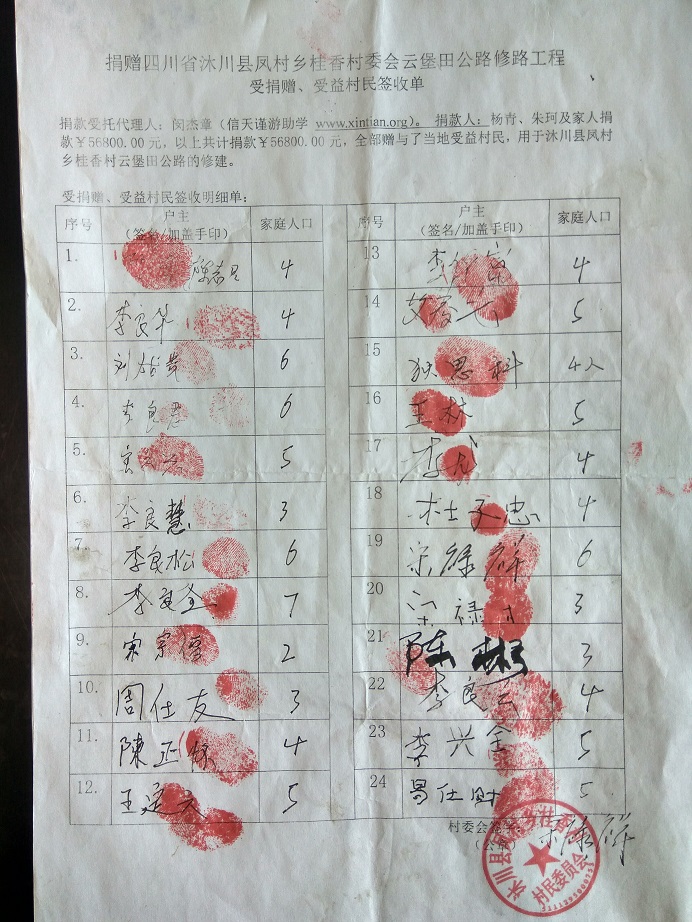 捐赠四川省沐川县凤村乡桂香村委会云堡田公路修路工程
受捐赠、受益村民签收单
捐款受托代理人：闵杰章（信天谨游助学 www.xintian.org）。 捐款人：杨青、朱珂及家人捐
款￥56800.00 元，以上共计捐款￥56800.00 元，全部赠与了当地受益村民，用于沐川县凤村
乡桂香村云堡田公路的修建。
受捐赠、受益村民签收明细单：
序号 户主（签名/加盖手印） 家庭人口 序号 户主（签名/加盖手印） 家庭人口
1. 4
2. 李良华 4
3. 6
4. 李良 6
5. 5
6. 李良慧 3
7. 李良松 6
8. 李良全 7
9. 宋宗儒 2
10. 周仕友 3
11. 陳正 4
12. 王廷 5
13 李 4
14 5
15 狄思科 4人
16 王林 5
17 李 4
18 杜文忠 4
19 宋绿群 6
20 禄 3
21 陈彬 3
22 李良云 4
23 李兴全 5
24 仕财 5
村委会签字
（公章）
宋绿群
沐川县
村民委员会